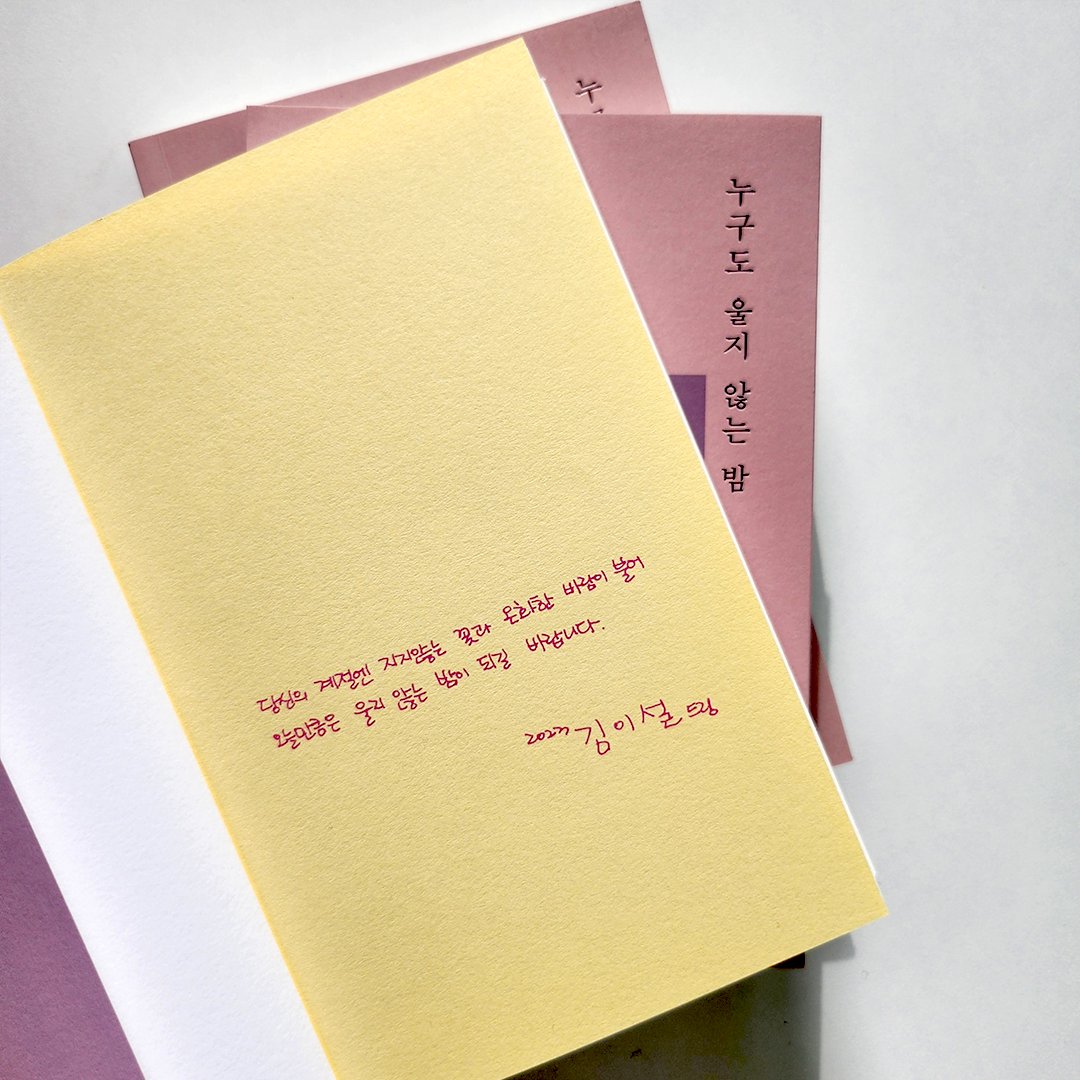 누
누구도 울지 않는 밤
당신의 계절엔 지지않는 꽃과 온화한 바람이 불어
오늘만큼은 울지 않는 밤이 되길 바랍니다.
2023 김이설 드림